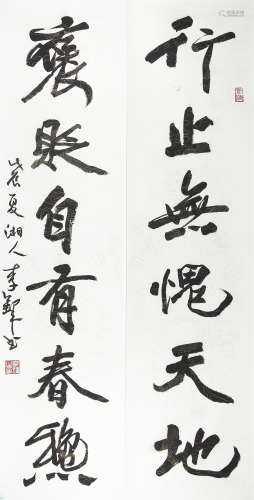 行止無愧天地
褒貶自有春穐
戊辰夏湘人李鐸书